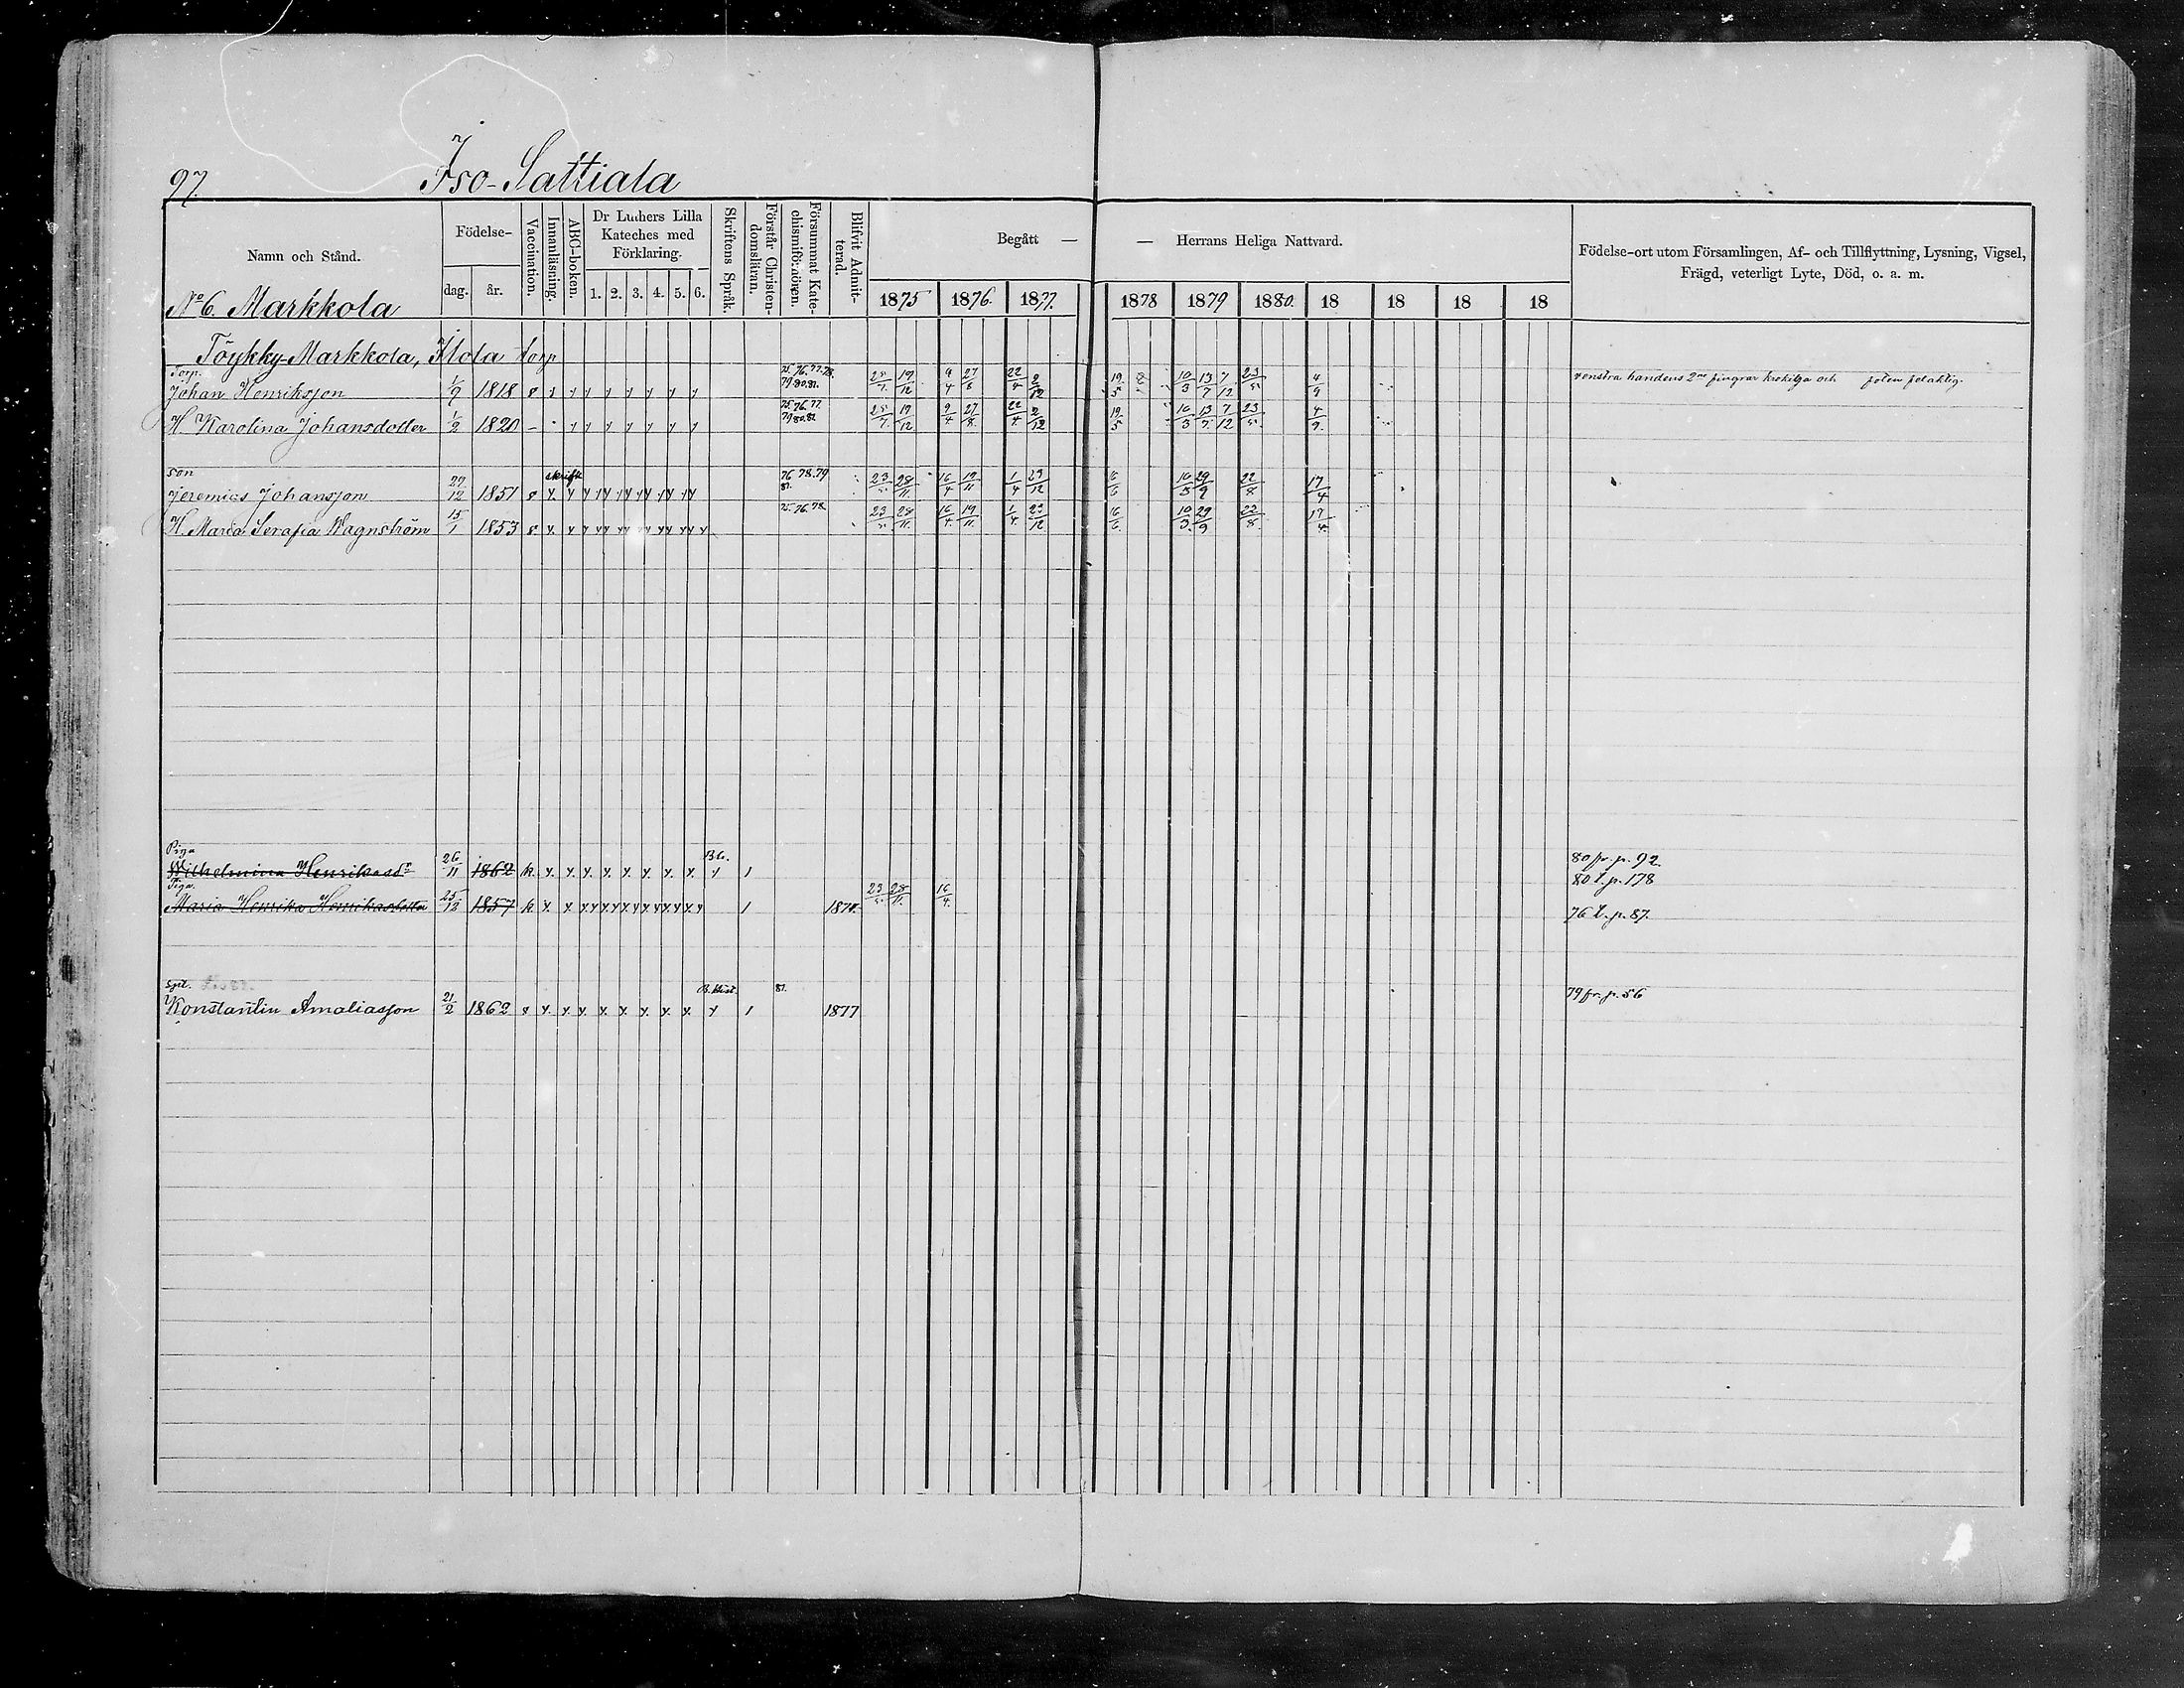 97.
Iso-Sattiala
Namn och Stånd.
Födelse-
dag.
år.
Vaccination.
Innanläsning.
ABC-boken.
Dr Luthers Lilla
Kateches med
Förklaring.
1. 2. 3. 4. 5. 6.
Skriftens Språk.
Förstår Christen-
domsläran.
Försummat Kate-
chismiförhören.
Blifvit Admit-
terad.
Begått —
— Herrans Heliga Nattvard.
1875 1876. 1877. 1878 1879 1880. 18 18 18 18
Födelse-ort utom Församlingen, Af- och Tillflyttning, Lysning, Vigsel,
Frägd, veterligt Lyte, Död, o. a. m.
No 6. Markkola
Töykky-Markkola, Ilola torp
Torp. 75. 76. 77. 78.
79. 80. 81.
Johan Henriksson 1/9 1818 19/12 9/4 27/8 22/4 2/12 19/5 10/3 13/7 7/12 23/5 4/9 venstra handens 2ne fingrar krokiga och foten felaktig.
75. 76. 77.
79 80. 81
H. Karolina Johansdotter 1/2 1820 19/12 9/4 27/8 22/4 2/12 19/5 10/3 13/7 7/12 23/5 4/9
son skrift 76 78. 79
81.
Jeremias Johansson 27/12 1851 23/5 28/11 16/4 19/11 1/4 23/12 16/6 10/3 29/9 22/8 17/4
75. 76. 78.
H. Maria Serafia Wagnström 15/1 1853 23/5 28/11 16/4 19/11 1/4 23/12 16/6 10/3 29/9 22/8 17/4
Piga B.h. 80 fr. p. 92.
Wilhelmina Henriksdr 26/11 1862 80 t. p. 178
Piga.
Maria Henrika Henriksdotter 25/12 1857 1874 23/5 28/11 16/4 76 t. p. 87.
spil. B. hist. 81. 79 fr. p. 56
Konstantin Amaliasson 21/2 1862 1877